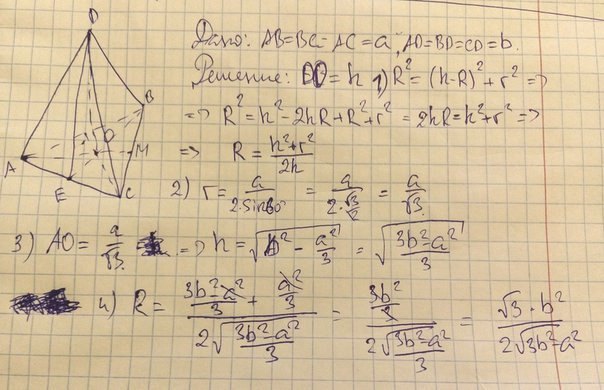 D
Дано: AB=BC=AC=a, AD=BD=CD=b.
Решение: DO=h 1) R² = (h-R)² + r² =>
=> R² = h² - 2hR + R² + r² = 2hR = h² + r² =>
=> R = (h² + r²)/(2h)
B
O
A
M
E
C
2) r = a/(2·sin60°) = a/(2·√3/2) = a/√3.
3) AO = a/√3. => h = √(b² - a²/3) = √((3b²-a²)/3)
4) R = ((3b²-a²)/3 + a²/3)/(2√((3b²-a²)/3)) = (3b²/3)/(2√((3b²-a²)/3)) = (√3·b²)/(2√(3b²-a²))